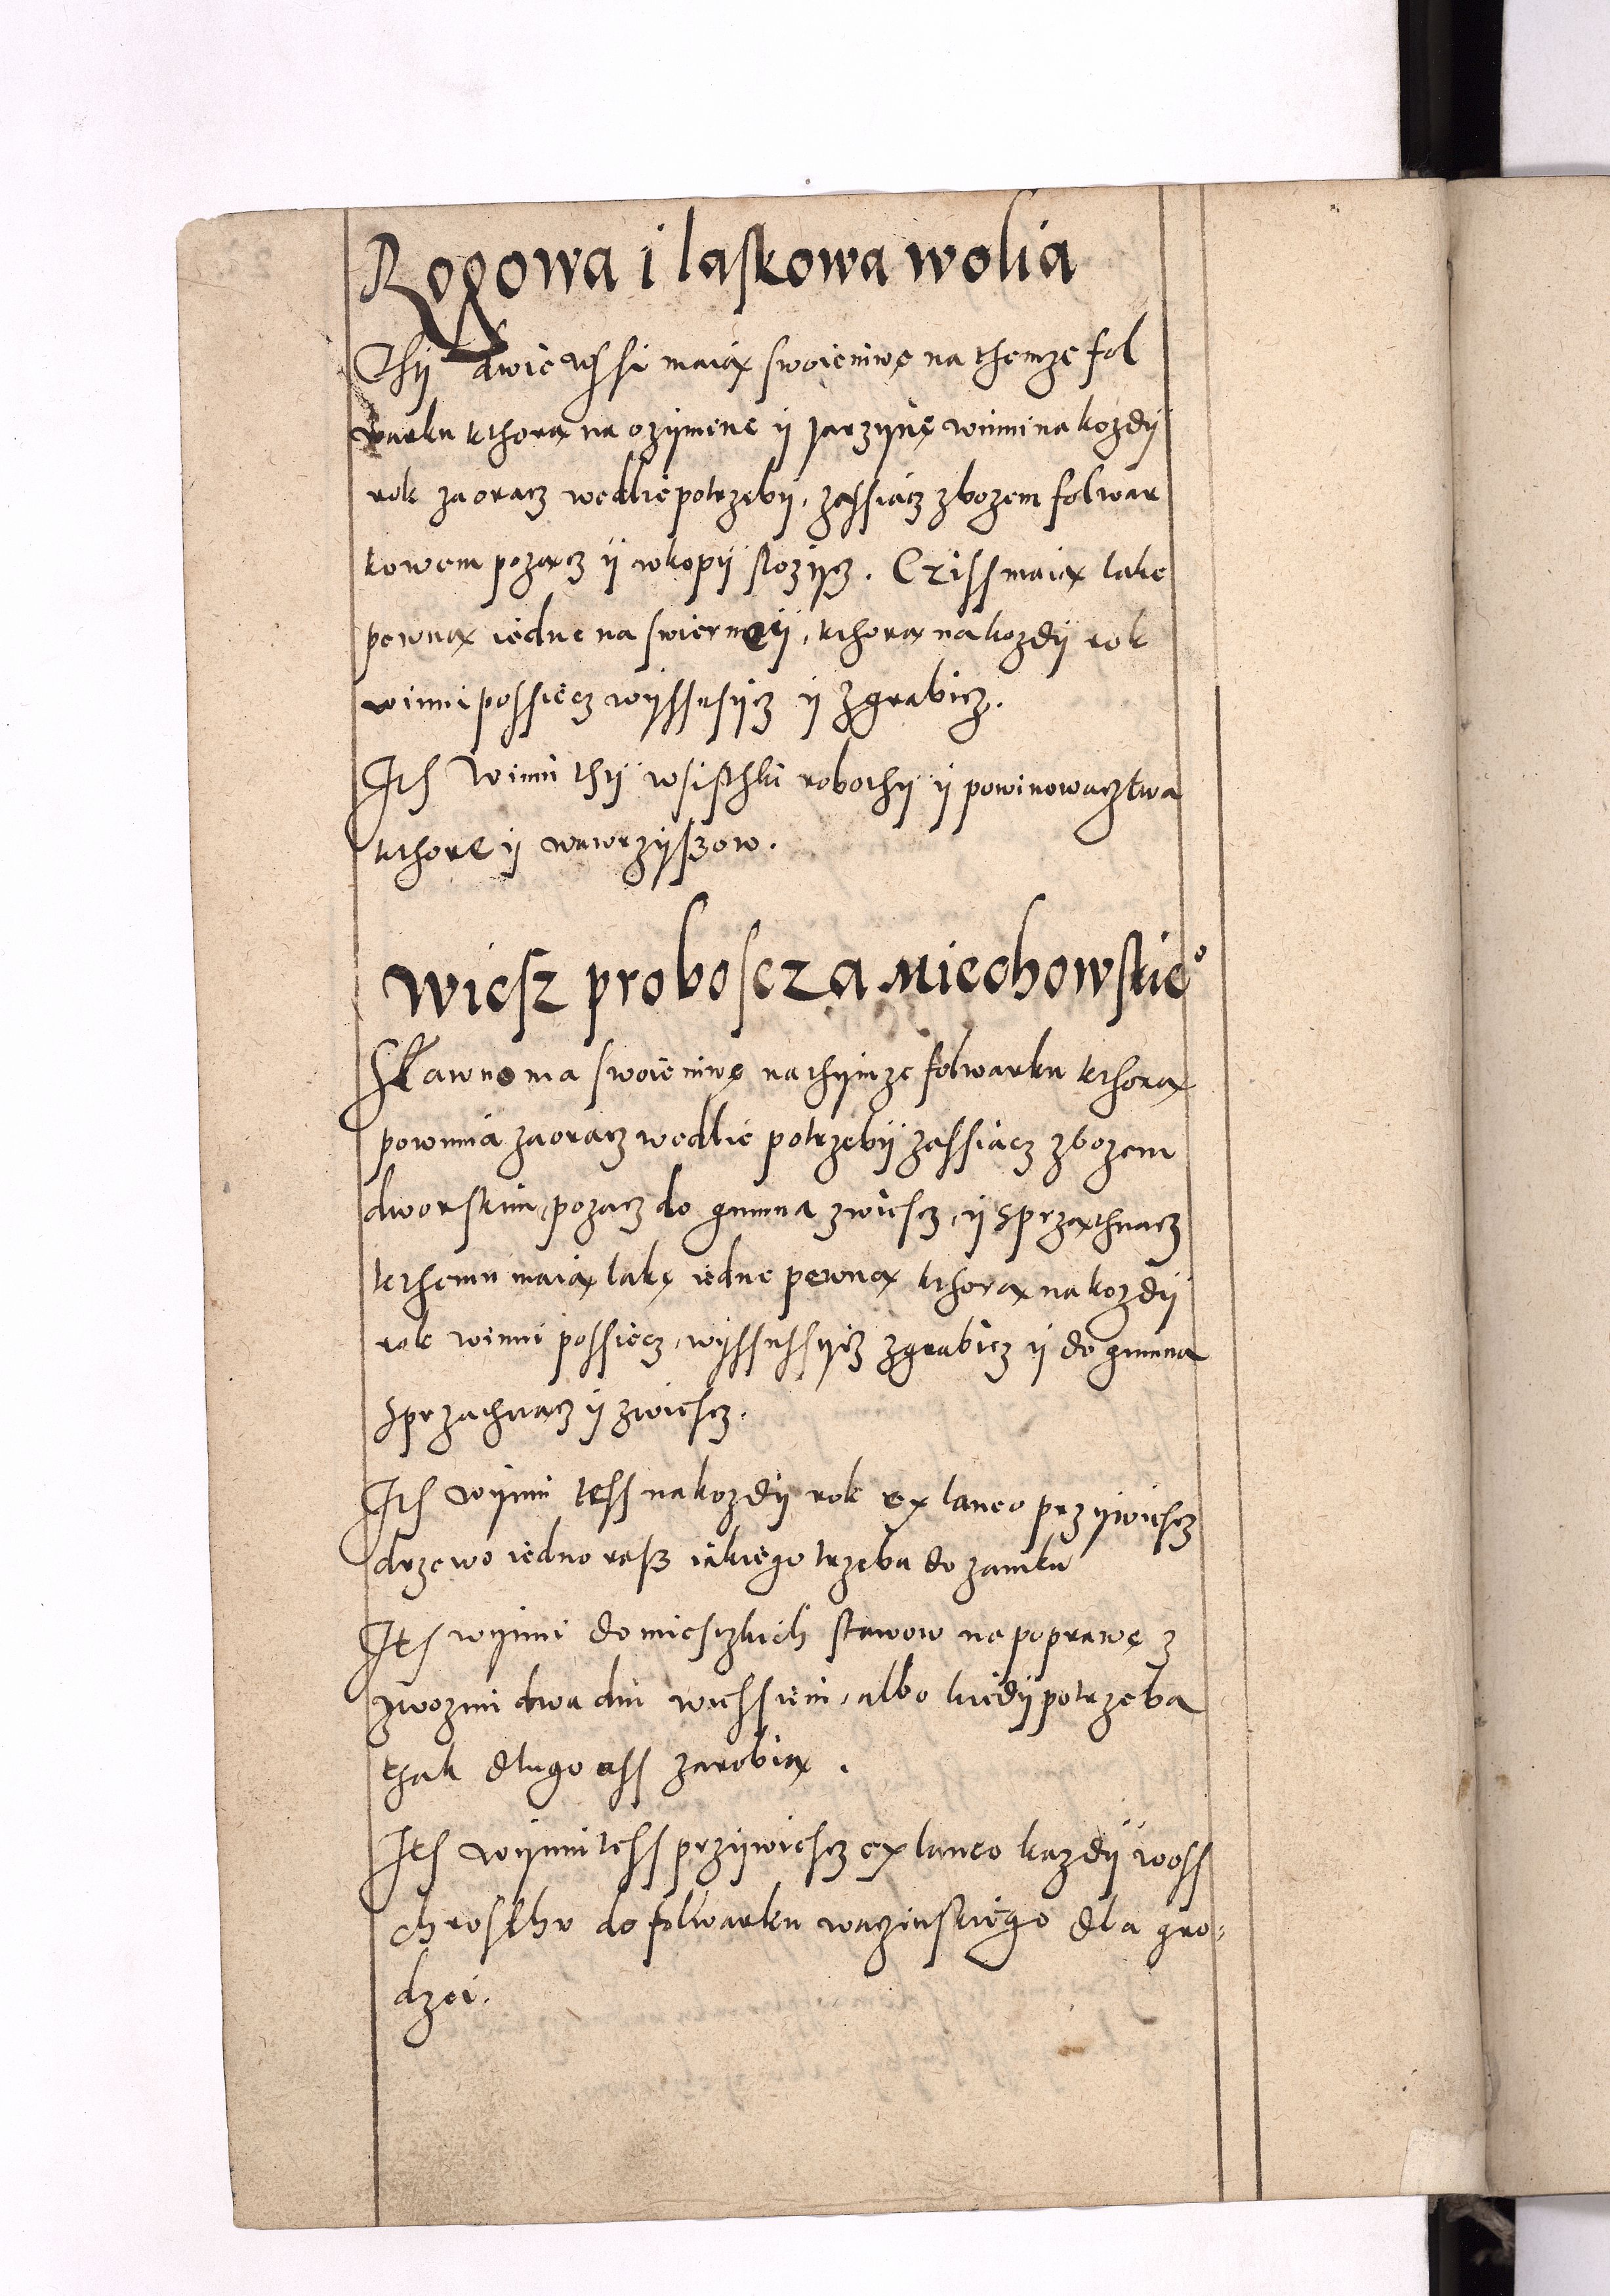 Rogowa i laskowa wolia
Thÿ dwie wssi maią swoie niwę na themze fol
warku kthorą na ozÿmine ÿ jarzÿnę winni na kozdÿ
rok zaoracz wedlie potrzebÿ, zassiacz zbozem folwar
kowem pozącz ÿ wkopÿ stozÿcz. Czissmaią lake
pewną iedne na swiermÿ, kthorą na kozdÿ rok
winni possiecz wÿssusÿcz ÿ zgrabicz.
Ith Winni thÿ wsisthki robothÿ ÿ powinowacztwa
kthore ÿ wawrzÿszow.
wiesz proboscza miechowskie°
Sławno ma swoie niwę nathÿmze folwarku kthorą
powinna zaoracz wedlie potrzebÿ zassiacz zbozem
dworskim, pozacz do gumna zwiescz, ÿ sprzathnacz
kthemu maią lakę iedne pewną kthorą na kozdÿ
rok winni possiecz, wÿssussÿcz zgrabicz ÿ do gumna
sprzathnacz ÿ zwiescz.
Ith wÿnni tess na kozdÿ rok ex laneo przÿwiescz
drzewo iedno rasz iakiego trzeba do zamku
Ith wÿnni do miesczkich stawow na poprawę z
zwozmi dwa dni wiessieni, albo kiedÿ potrzeba
thak dlugo ass zarobią.
Ith wÿnni tess przÿwiescz ex laneo kazdÿ woss
chrosthv do folwarku waczinskiego dla gro-
dzei.